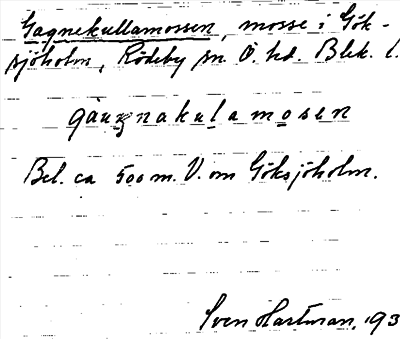 Gagnekullamossen, mosse i Gök-
sjöholm, Rödeby sn Ö. hd. Blek. l.
Bel. ca 500 m. V. om Göksjöholm.
Sven Hartman, 193